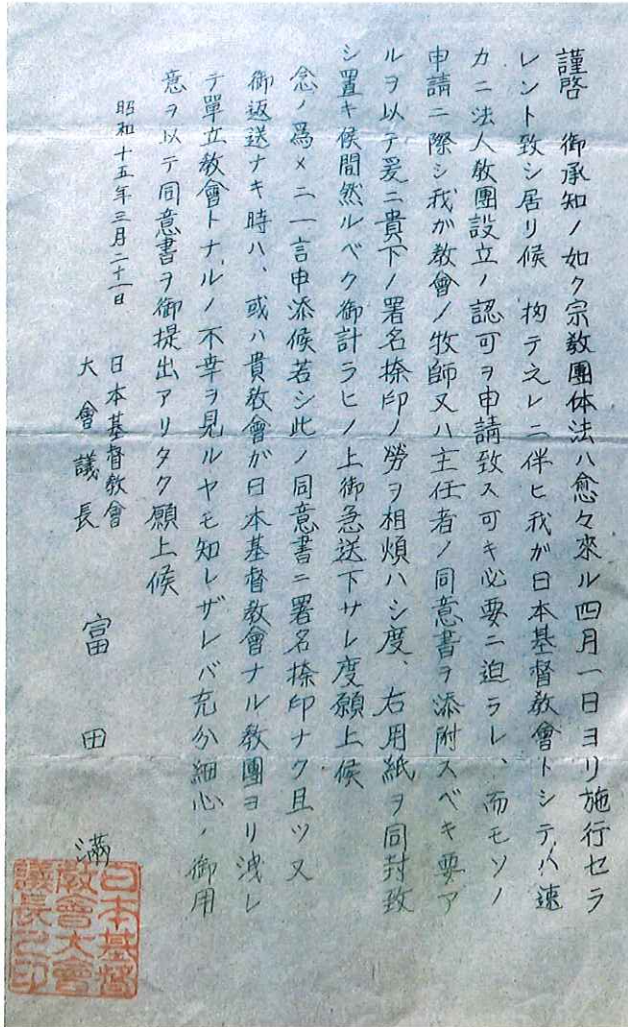 謹啓 御承知ノ如ク宗教團体法ハ愈々來ル四月一日ヨリ施行セラ
レント致シ居リ候 拘テ之レニ伴ヒ我が日本基督教會トシテハ速
カニ法人教團設立ノ認可ヲ申請致ス可キ必要ニ迫ラレ、而モソノ
申請ニ際シ我が教會ノ牧師又ハ主任者ノ同意書ヲ添附スベキ要ア
ルヲ以テ爰ニ貴下ノ署名捺印ノ勞ヲ相煩ハシ度、右用紙ヲ同封致
シ置キ候間然ルベク御計ラヒノ上御急送下サレ度願上候
念ノ爲メニ一言申添候若シ此ノ同意書ニ署名捺印ナク且ツ又
御返送ナキ時ハ、或ハ貴教會が日本基督教會ナル教團ヨリ洩レ
テ單立教會トナルノ不幸ヲ見ルヤモ知レザレバ充分細心ノ御用
意ヲ以テ同意書ヲ御提出アリタク願上候
昭和十五年三月二十一日
日本基督教會
大會議長 富田 満
日本基督
教會大會
議長之印